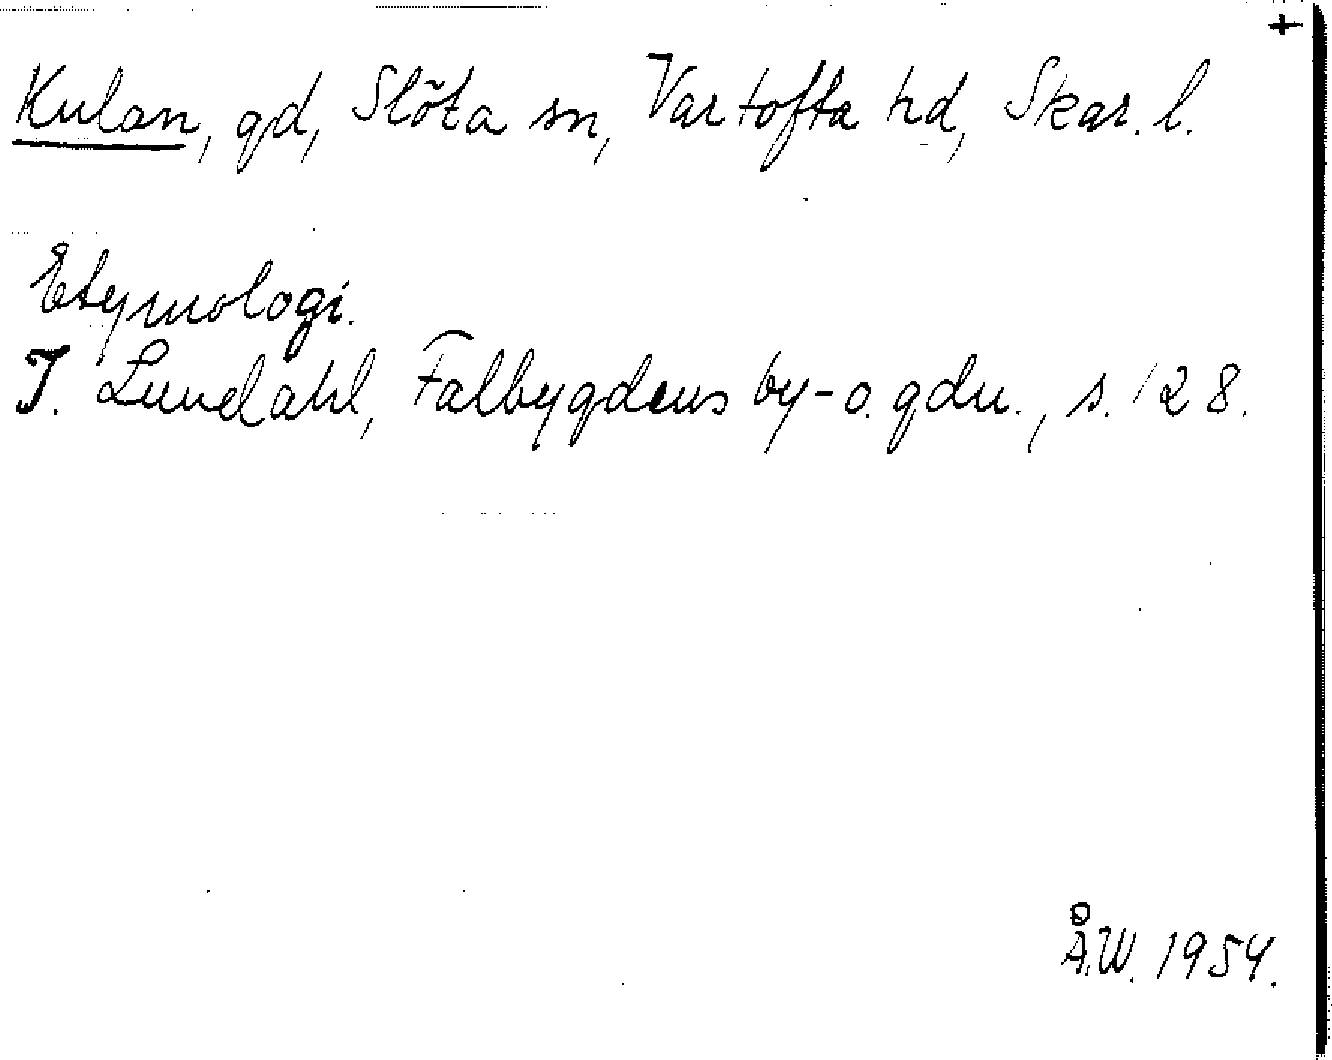 +
Kulan, gd, Slöta sn, Vartofta hd, Skar. l.
Etymologi.
I. Lundahl, Falbygdens by- o. gdn., s. 128.
Å.W. 1954.